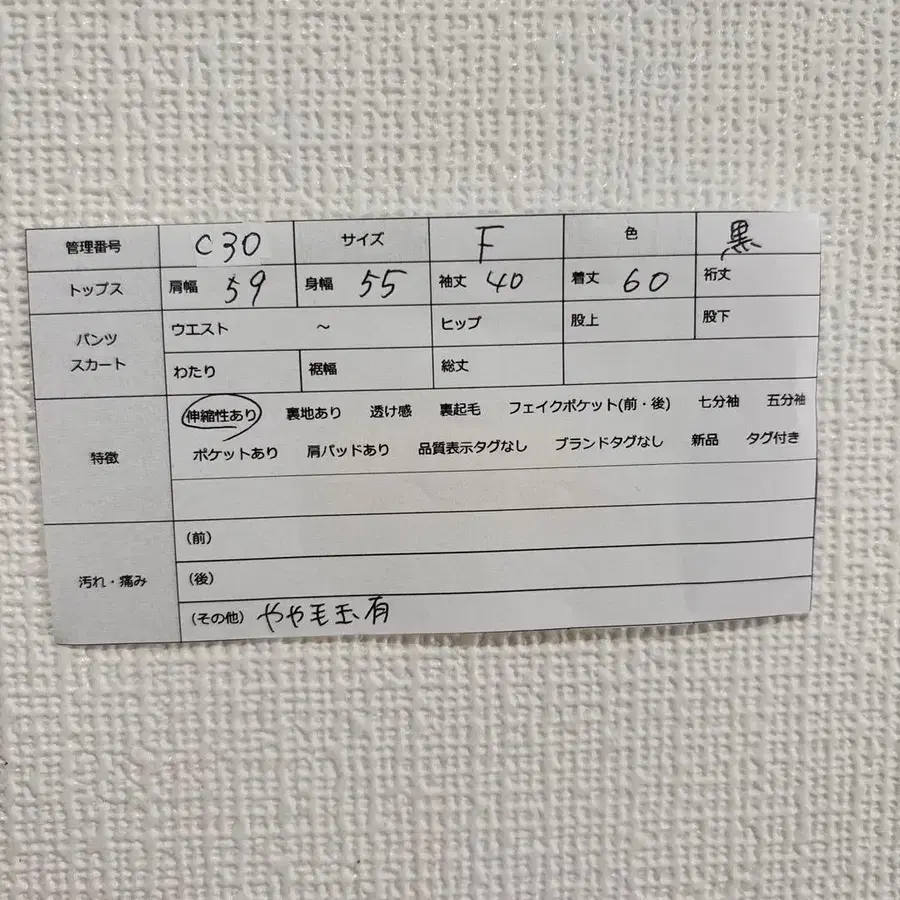 管理番号 C30 サイズ F 色 黒
トップス 肩幅 59 身幅 55 袖丈 40 着丈 60 裄丈
パンツ スカート ウエスト ～ ヒップ 股上 股下
わたり 裾幅 総丈
特徴 伸縮性あり 裏地あり 透け感 裏起毛 フェイクポケット(前・後) 七分袖 五分袖
ポケットあり 肩パッドあり 品質表示タグなし ブランドタグなし 新品 タグ付き
汚れ・痛み (前)
(後)
(その他) やや毛玉有